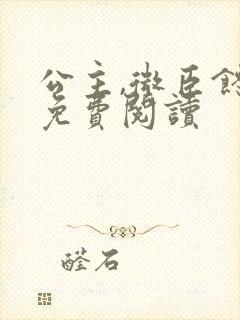 公主,微臣
免費閱讀
醛石